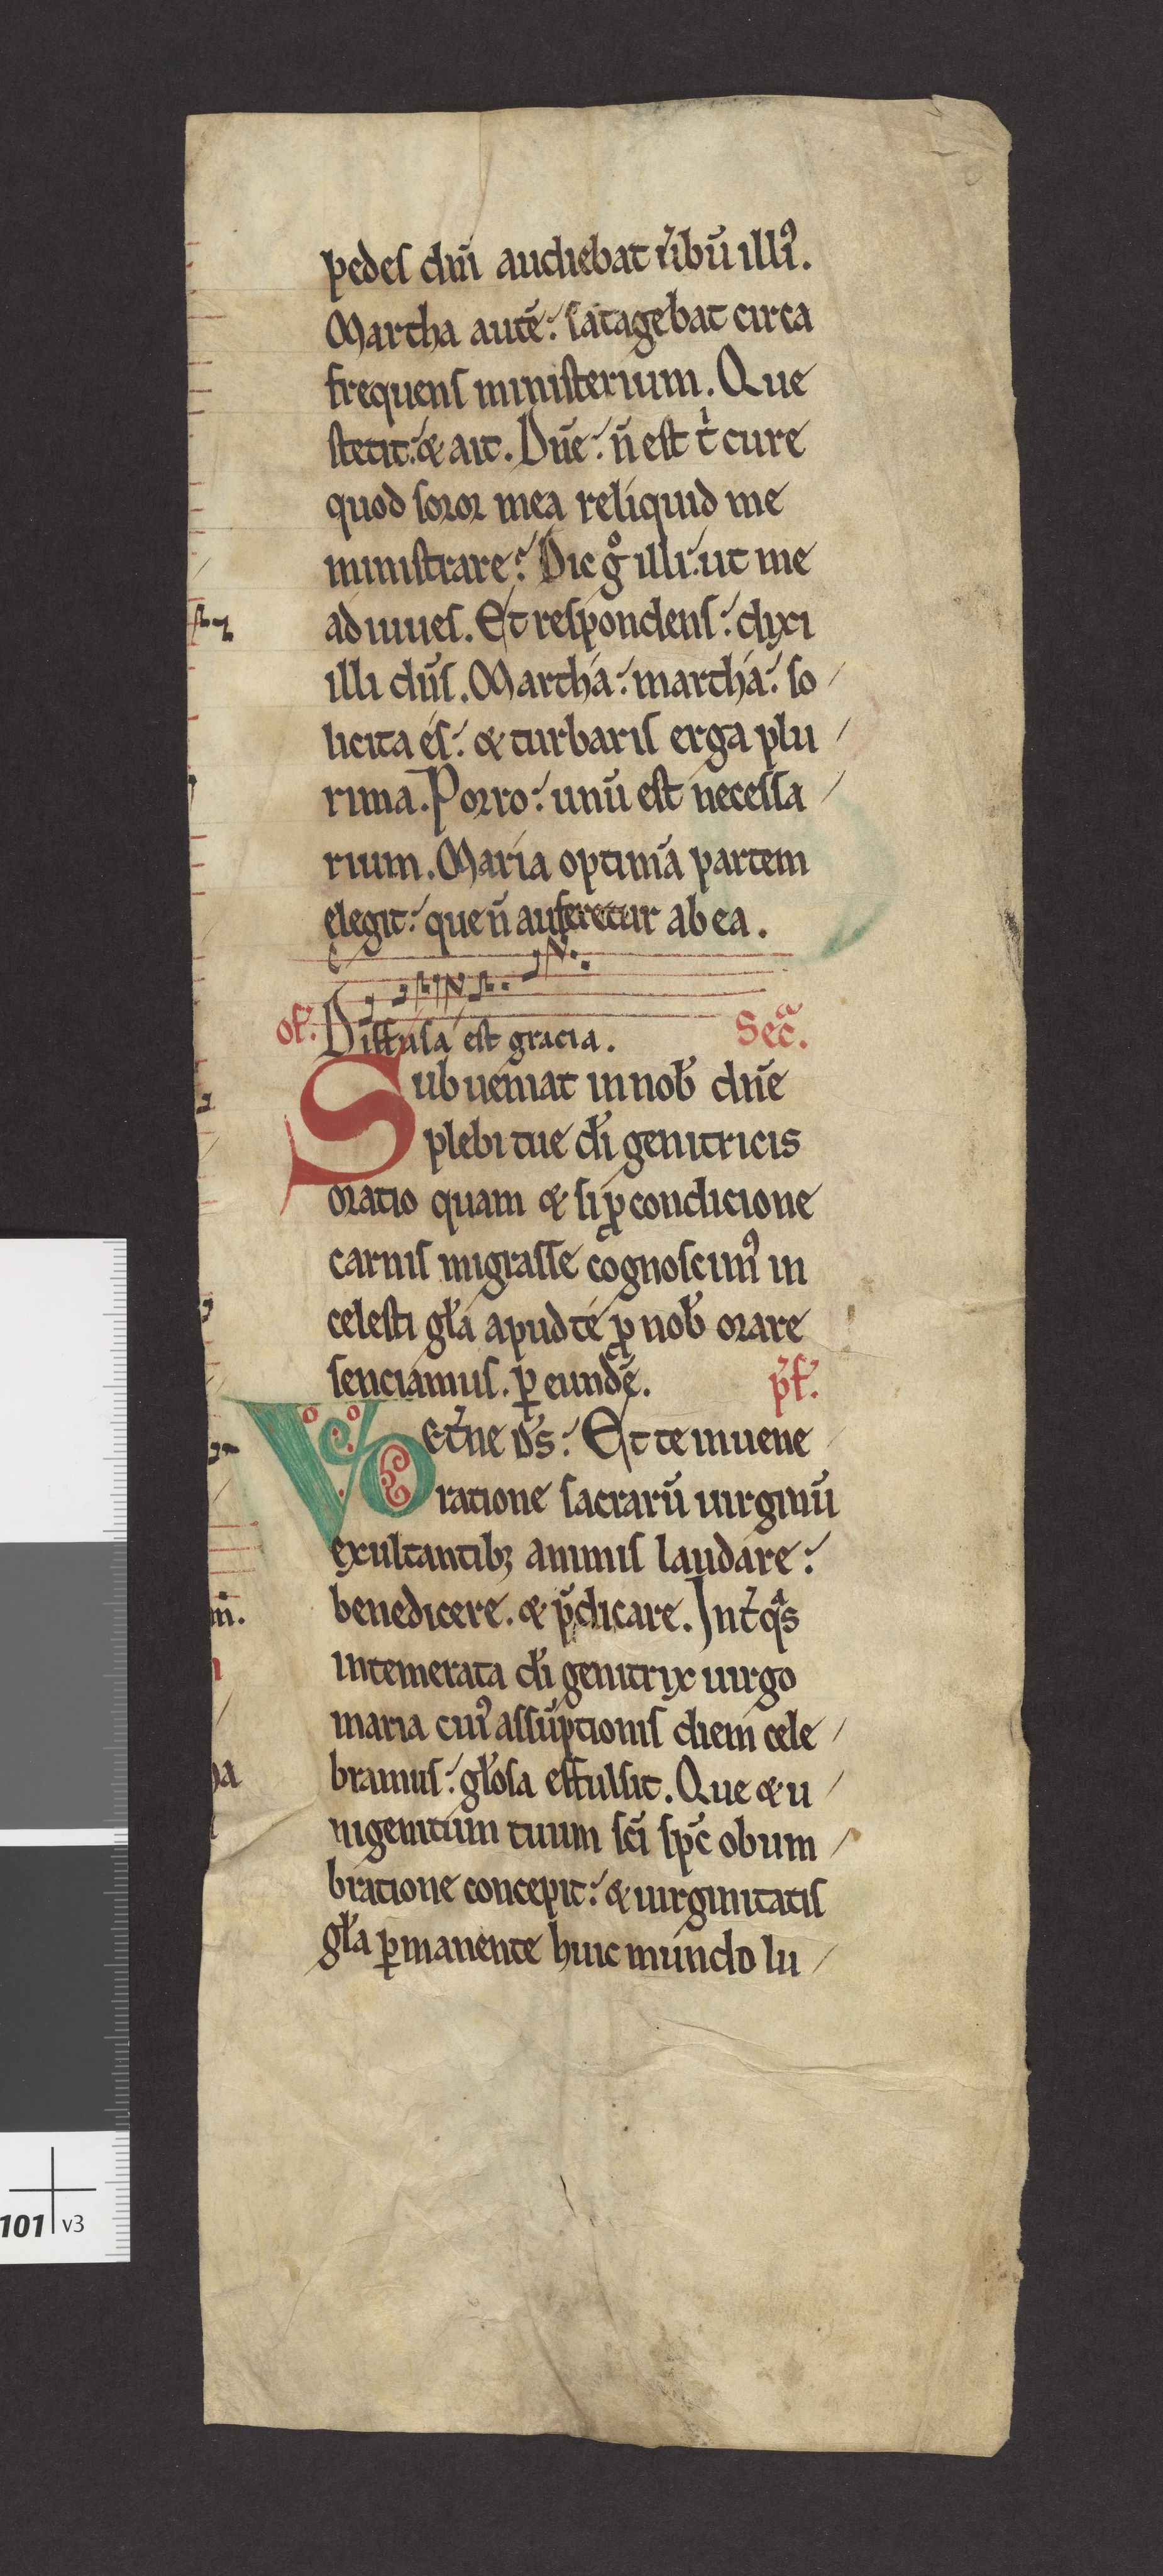 pedes dnī audiebat ṽbū illi᾽.
Martha autē: satagebat circa
frequens ministerium. Que
stetit: & ait. Dn̄e: n̄ est t̓ cure
quod soror mea reliquid me
ministrare? Dic g̊ illi: ut me
adiuues. Et respondens: dixi
illi dn̄s. Martha: martha: so
licita es: & turbaris erga plu
rima. Porro: unū est necessa
rium. Maria optimā partem
elegit: que n̄ auferetur ab ea.
of. Diffusa est gracia. Secᷓ.
Subueniat in nob̄ dn̄e
plebi tue di̅ genitricis
oratio quam & si ꝓ condicione
carnis migrasse cognoscim᾽ in
celesti gl̄a apud te ꝓ nob̄ orare
senciamus. ꝑ eundē. p̄f.
VD et̓ne ds̄: Et te in uene
ratione sacrarū uirginū
exultantibꝫ animis laudare:
benedicere. & p̄dicare. Int̓ qᷓs
intemerata di̅ genitrix uirgo
maria cui᾽ assūptionis diem cele
bramus: gl̄osa effulsit. Que & u
nigenitum tuum sci̅ spc̄ obum
bratione concepit: & uirginitatis
gl̄a ꝑmanente huic mundo lu
m.
a